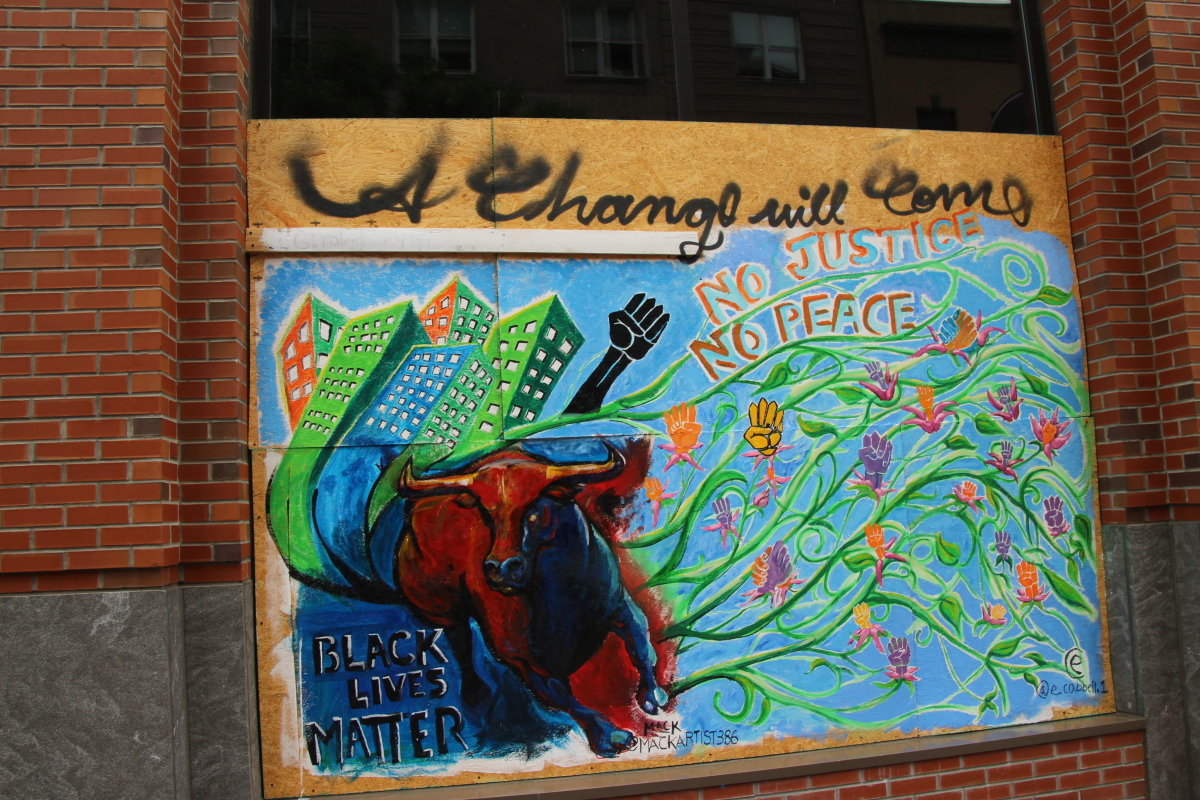 A Change will Come
NO JUSTICE
NO PEACE
BLACK
LIVES
MATTER
MACK
@MACKARTIST386